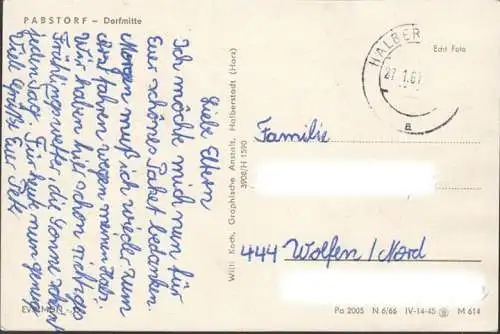 PABSTORF – Dorfmitte
Liebe Eltern
Ich möchte mich nun für
Euer schönes Paket bedanken.
Morgen muß ich wieder zum
Arzt fahren wegen meinen
Wir haben hier schon richtiges
Frühlingswetter, die Sonne scheint
jeden Tag. Für heute nun genug.
Viele Grüße Euer
Willi Koch, Graphische Anstalt, Halberstadt (Harz)
3908/H 1590
HALBER
27.1.67
a
Echt Foto
Familie
444 Wolfen / Nord
Pa 2005 N 6/66 IV-14-45 M 614